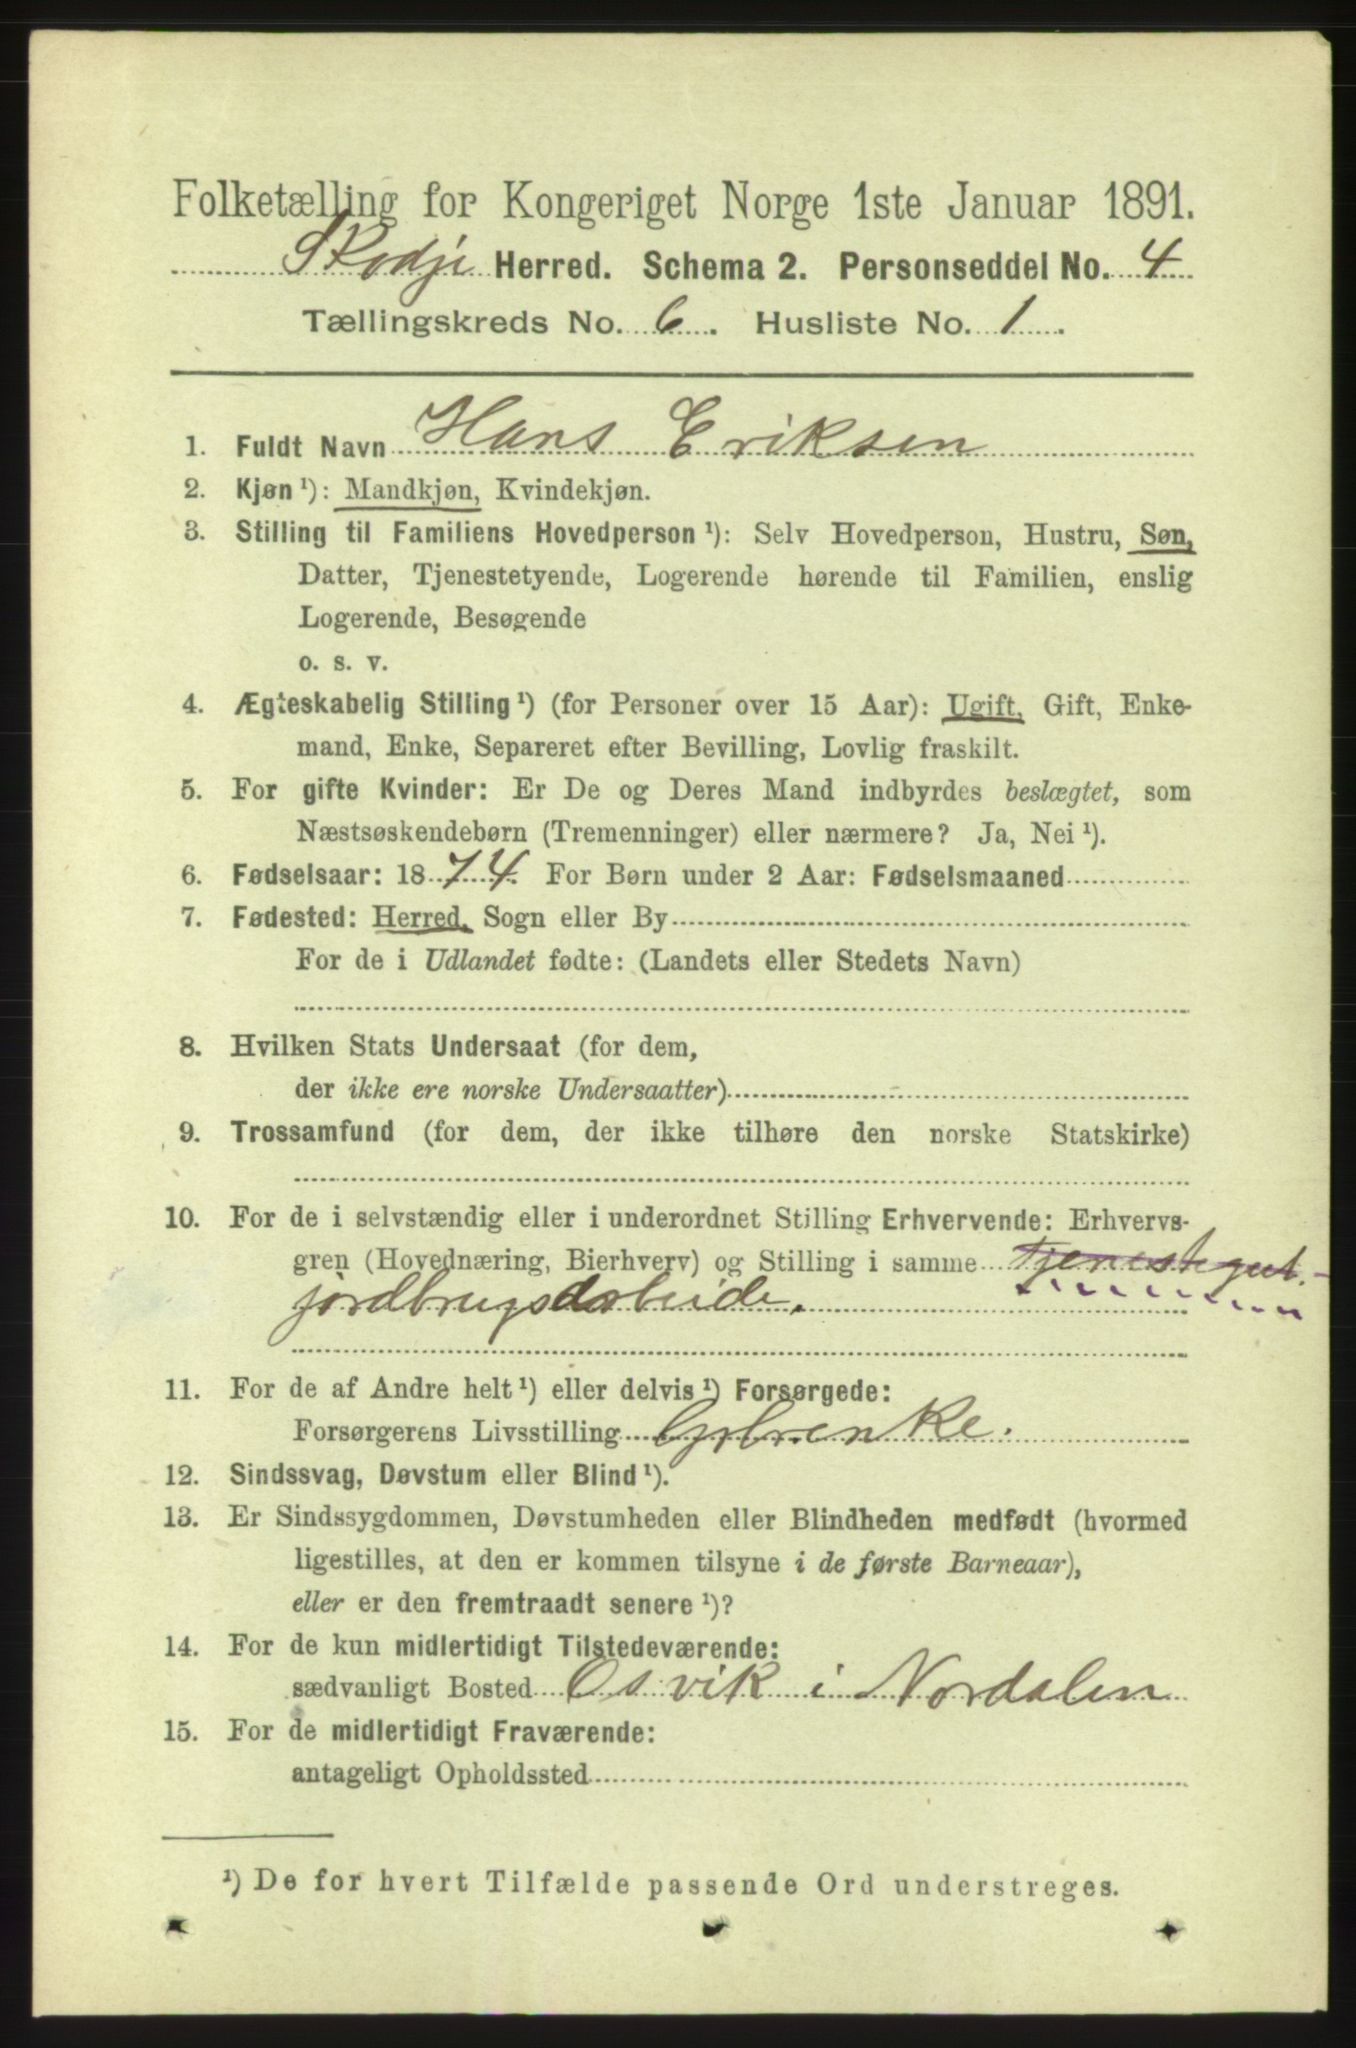 Folketælling for Kongeriget Norge 1ste Januar 1891.
Skodje Herred. Schema 2. Personseddel No. 4
Tællingskreds No. 6. Husliste No. 1.
1. Fuldt Navn Hans Eriksen
2. Kjøn ¹): Mandkjøn, Kvindekjøn.
3. Stilling til Familiens Hovedperson ¹): Selv Hovedperson, Hustru, Søn,
Datter, Tjenestetyende, Logerende hørende til Familien, enslig
Logerende, Besøgende
o. s. v.
4. Ægteskabelig Stilling ¹) (for Personer over 15 Aar): Ugift, Gift, Enke-
mand, Enke, Separeret efter Bevilling, Lovlig fraskilt.
5. For gifte Kvinder: Er De og Deres Mand indbyrdes beslægtet, som
Næstsøskendebørn (Tremenninger) eller nærmere? Ja, Nei ¹).
6. Fødselsaar: 1874. For Børn under 2 Aar: Fødselsmaaned
7. Fødested: Herred, Sogn eller By
For de i Udlandet fødte: (Landets eller Stedets Navn)
8. Hvilken Stats Undersaat (for dem,
der ikke ere norske Undersaatter)
9. Trossamfund (for dem, der ikke tilhøre den norske Statskirke)
10. For de i selvstændig eller i underordnet Stilling Erhvervende: Erhvervs-
gren (Hovednæring, Bierhverv) og Stilling i samme Tjenestegut.
jordbrugsdarbeide.
11. For de af Andre helt ¹) eller delvis ¹) Forsørgede:
Forsørgerens Livsstilling
12. Sindssvag, Døvstum eller Blind ¹).
13. Er Sindssygdommen, Døvstumheden eller Blindheden medfødt (hvormed
ligestilles, at den er kommen tilsyne i de første Barneaar),
eller er den fremtraadt senere ¹)?
14. For de kun midlertidigt Tilstedeværende:
sædvanligt Bosted Osvik i Nordalen
15. For de midlertidigt Fraværende:
antageligt Opholdssted
¹) De for hvert Tilfælde passende Ord understreges.